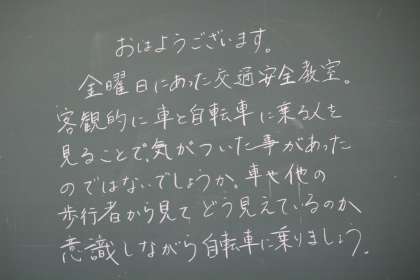 おはようございます。
金曜日にあった交通安全教室。
客観的に車と自転車に乗る人を
見ることで、気がついた事があった
のではないでしょうか。車や他の
歩行者から見てどう見えているのか
意識しながら自転車に乗りましょう。